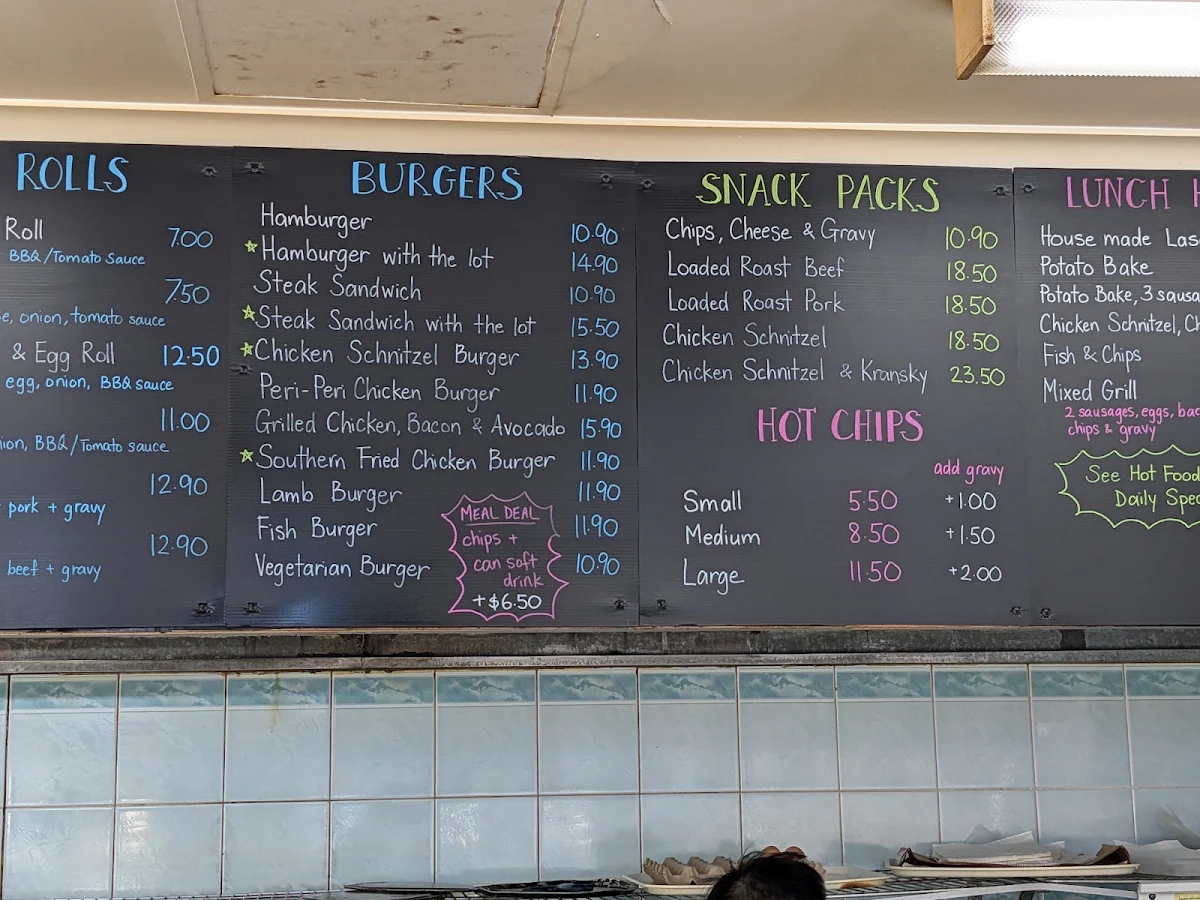 ROLLS
Roll 7.00
BBQ/Tomato sauce
7.50
onion, tomato sauce
& Egg Roll 12.50
egg, onion, BBQ sauce
11.00
BBQ/Tomato sauce
12.90
pork + gravy
12.90
beef + gravy
BURGERS
Hamburger 10.90
Hamburger with the lot 14.90
Steak Sandwich 10.90
Steak Sandwich with the lot 15.50
Chicken Schnitzel Burger 13.90
Peri-Peri Chicken Burger 11.90
Grilled Chicken, Bacon & Avocado 15.90
Southern Fried Chicken Burger 11.90
Lamb Burger 11.90
Fish Burger 11.90
Vegetarian Burger 10.90
MEAL DEAL
chips +
can soft
drink
+$6.50
SNACK PACKS
Chips, Cheese & Gravy 10.90
Loaded Roast Beef 18.50
Loaded Roast Pork 18.50
Chicken Schnitzel 18.50
Chicken Schnitzel & Kransky 23.50
HOT CHIPS
add gravy
Small 5.50 +1.00
Medium 8.50 +1.50
Large 11.50 +2.00
LUNCH
House made
Potato Bake
Potato Bake, 3
Chicken Schnitzel,
Fish & Chips
Mixed Grill
2 sausages, eggs,
chips & gravy
See Hot Food
Daily